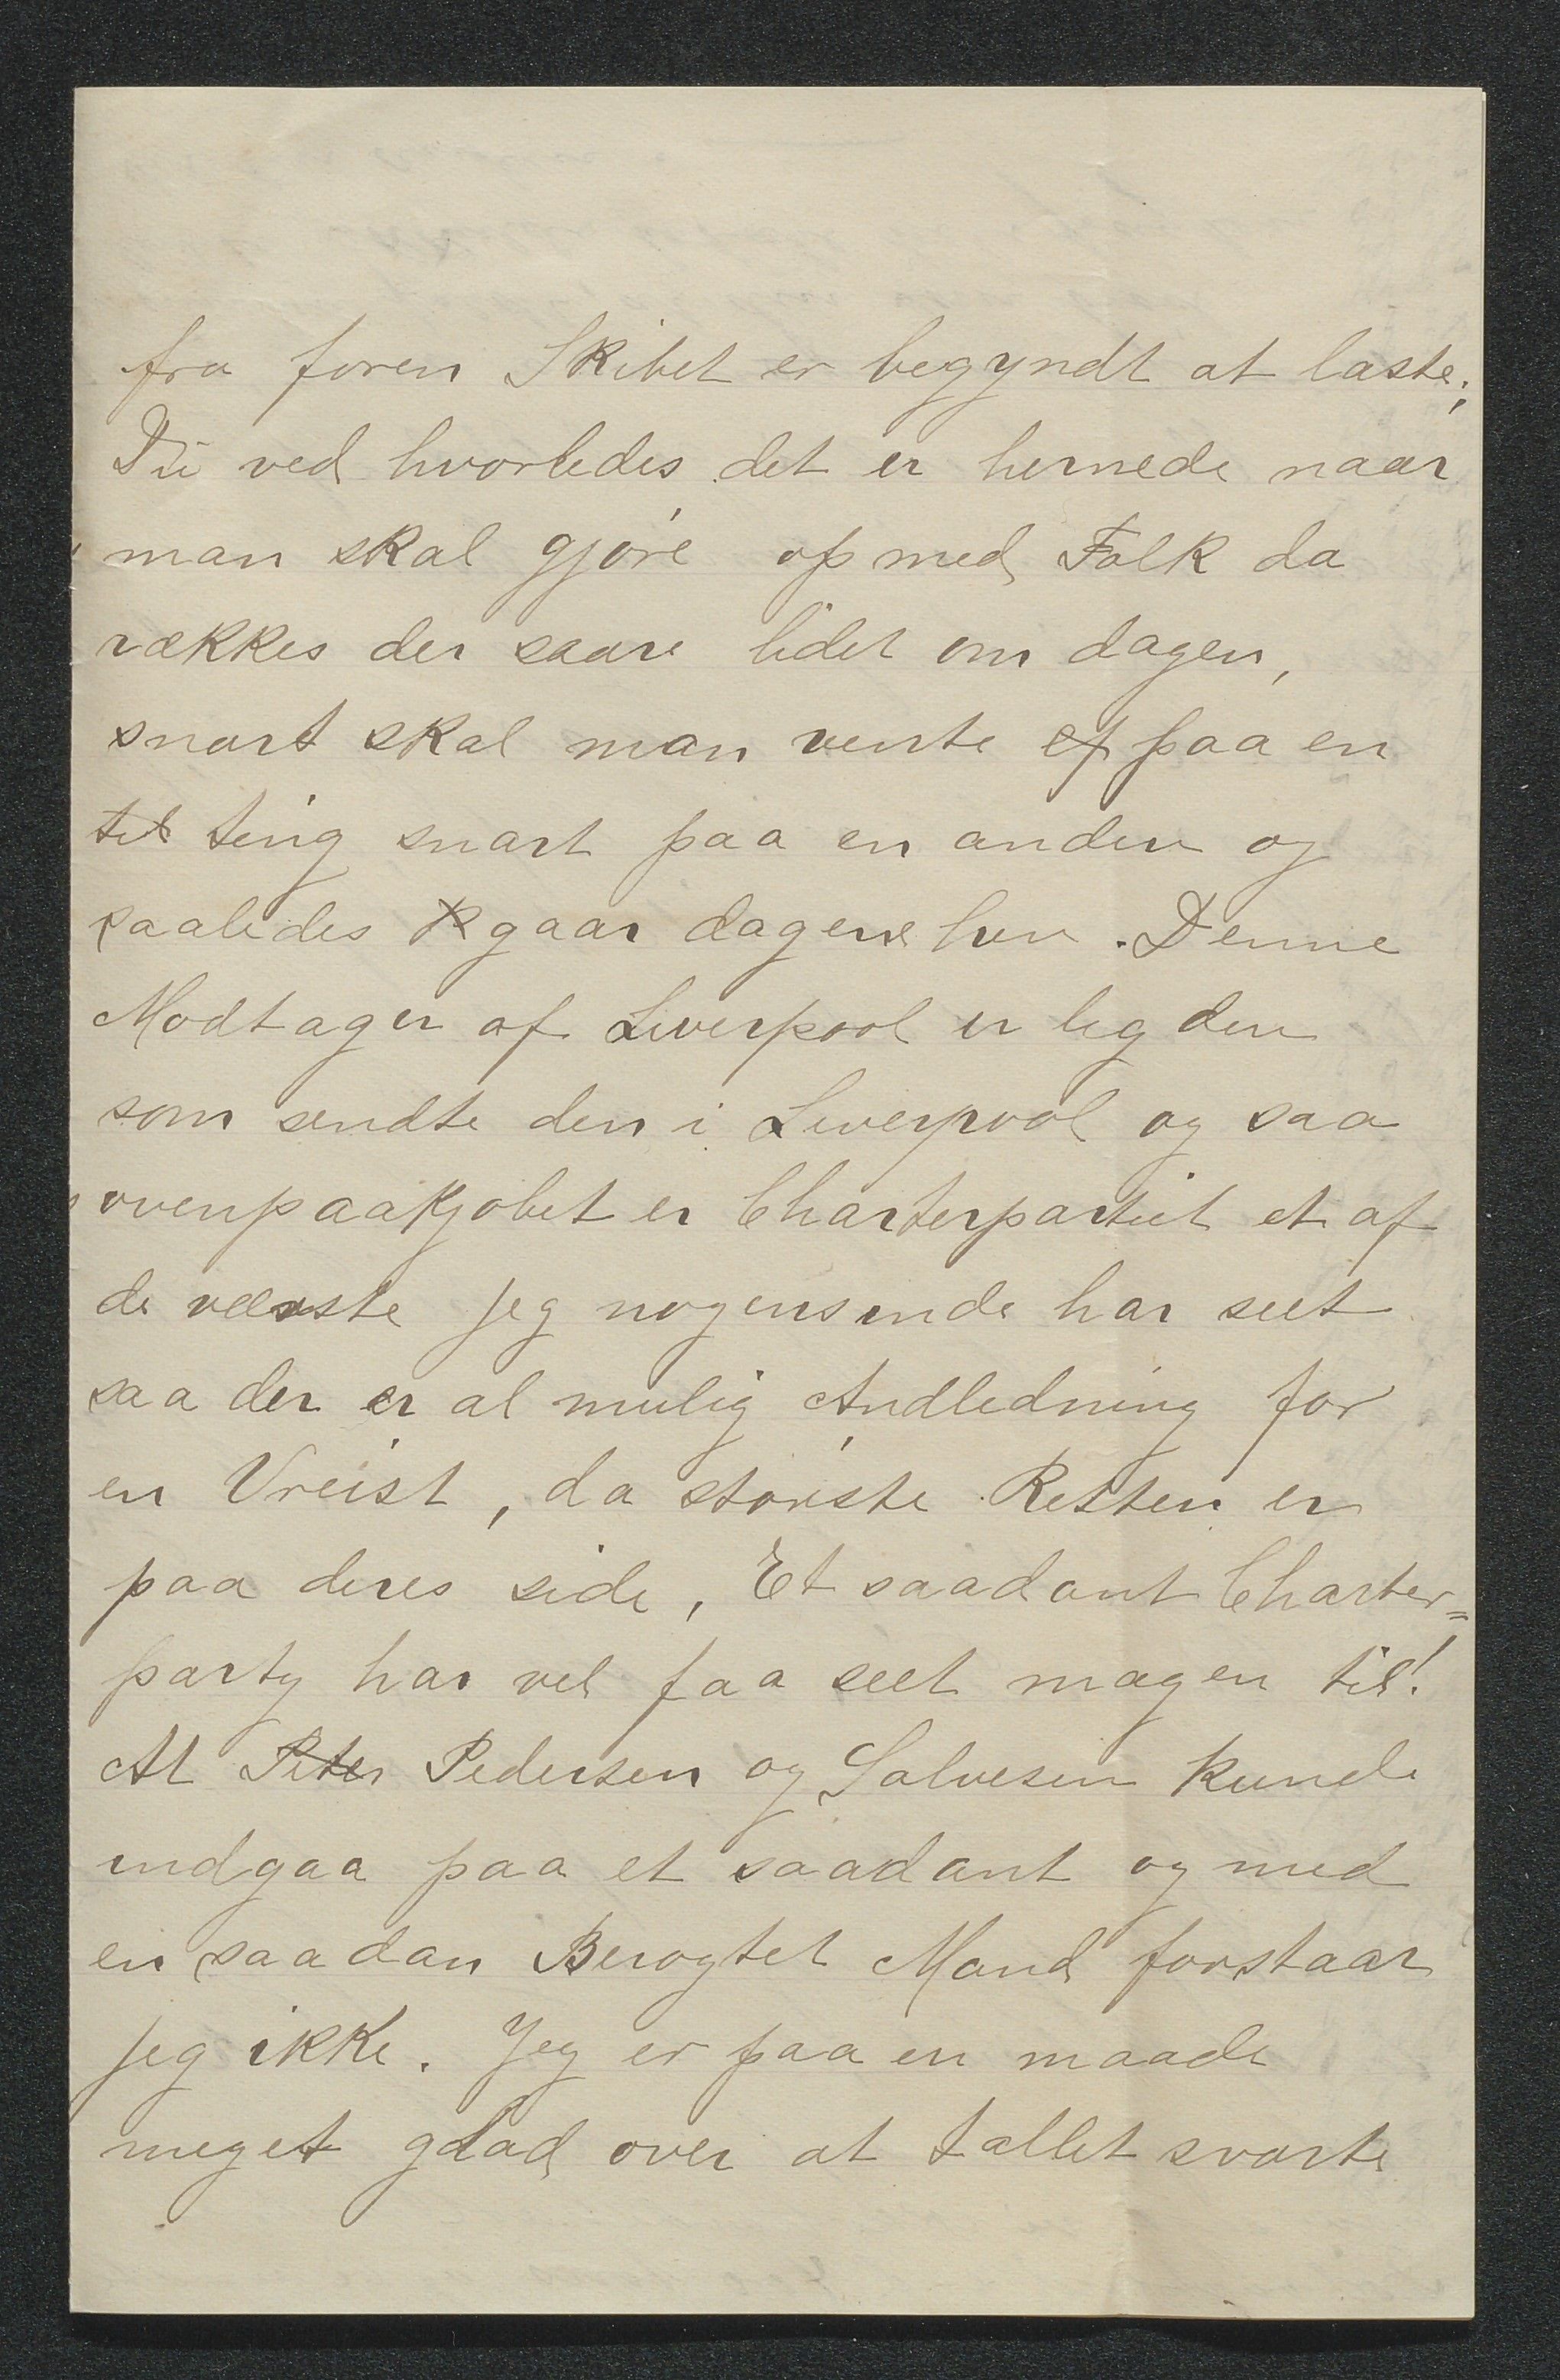 fra foren Skibet er begyndt at laste;
Du ved hvorledes det er hernede naar
man skal gjøre op med Folk da
rækkes der saare lidet om dagen,
snart skal man vente paa en
ting snart paa en anden og
saaledes gaar dagene hen. Denne
Modtager af Liverpool er lig den
som sendte den i Liverpool og saa
ovenpaakjøbet er Charterpartiet et af
de væsste jeg nogensinde har seet
saa der er al mulig Andledning for
en Vreist, da største Retten er
paa deres side, Et saadant Charter=
party har vel faa seet magen til!
At Peter Pedersen og Salvesen kunde
indgaa paa et saadant og med
en saadan Berogtet Mand forstaar
jeg ikke. Jeg er paa en maade
meget glad over at tallet svarte